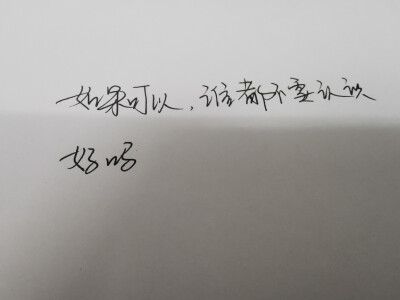 如果可以，谁都不要认识
好吗